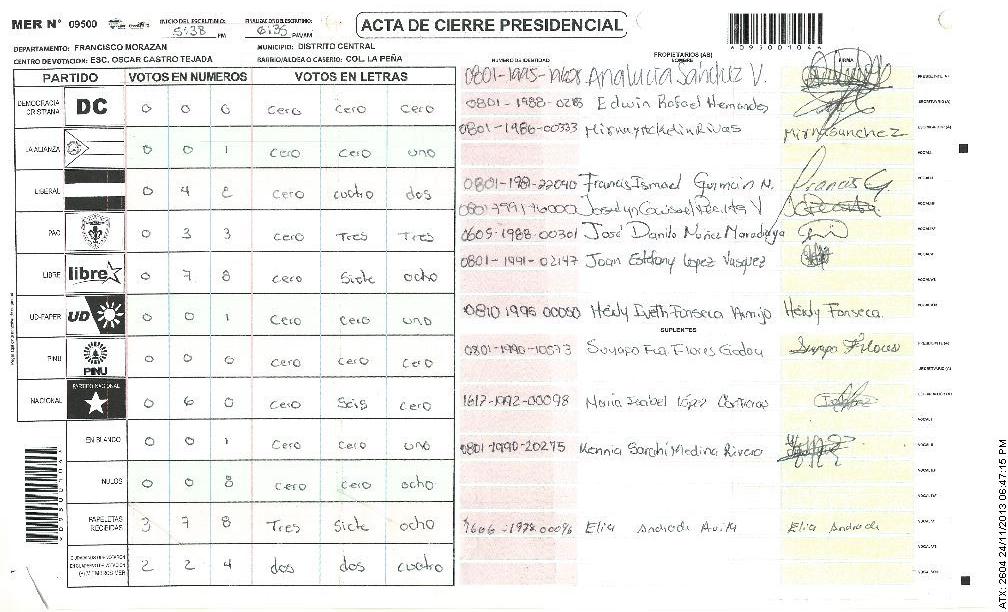 MER N° 09500
INICIO DEL ESCRUTINIO: 5:38 PM
FINALIZACION DE ESCRUTINIO: 6:35 PM/AM
ACTA DE CIERRE PRESIDENCIAL
DEPARTAMENTO: FRANCISCO MORAZAN
MUNICIPIO: DISTRITO CENTRAL
CENTRO DE VOTACION: ESC. OSCAR CASTRO TEJADA
BARRIO/ALDEA O CASERIO: COL. LA PEÑA
PARTIDO VOTOS EN NUMEROS VOTOS EN LETRAS
DEMOCRACIA CRISTIANA DC 0 0 0 cero cero cero
LA ALIANZA 0 0 1 cero cero uno
LIBERAL 0 4 2 cero cuatro dos
PAC 0 3 3 cero Tres Tres
LIBRE libre 0 7 8 cero Siete ocho
UD-FAPER UD 0 0 1 cero cero uno
PINU PINU 0 0 0 cero cero cero
NACIONAL PARTIDO NACIONAL 0 6 0 cero Seis cero
EN BLANCO 0 0 1 cero cero uno
NULOS 0 0 8 cero cero ocho
PAPELETAS RECIBIDAS 3 7 8 Tres Siete ocho
2 2 4 dos dos cuatro
NUMERO DE IDENTIDAD PROPIETARIOS (AS) NOMBRE FIRMA
Analucia Sanduz V.
0801-1988-0215 Edwin Rafael Hernandes
0801-1986-00333 Mirna Sanchez
Francis Ismael German N. Francis G.
0605-1988-00301 José Danilo Nuñez Maradiaga
0801-1991-02147 Joan Estefany Lopez Vasquez
0810 1996 00050 Heidy Iveth Fonseca Armijo Heidy Fonseca
SUPLENTES
0801-1990-10573 Suyapa Flores Godoy Suyapa Flores
1617-1992-00098 Maria Isabel López Contreras
0801-1990-20275 Kennia Sarahi Medina Rivera
Elia Andrade Avila Elia Andrade
ATX: 2604 24/11/2013 06:47:15 PM